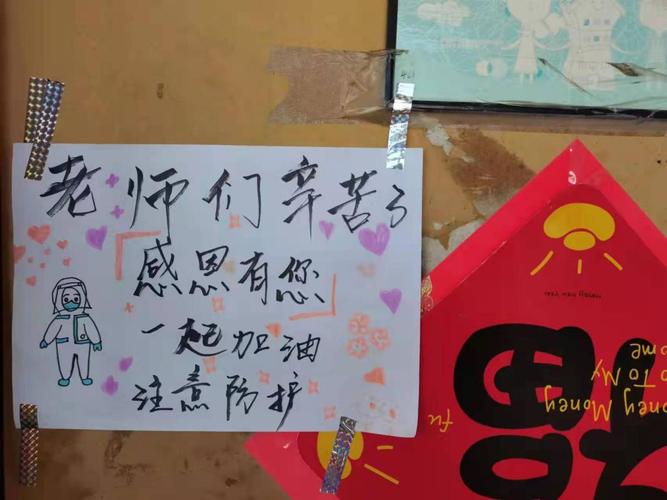 老师们辛苦了
「感恩有您」
一起加油
注意防护
Money Money
Go To My
Home
fu